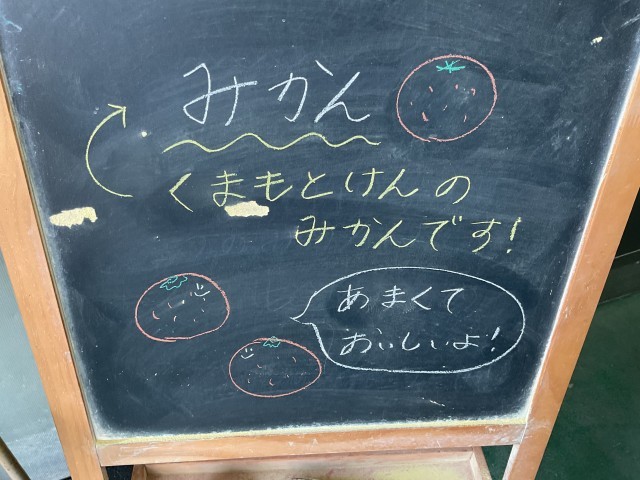 みかん
くまもとけんの
みかんです!
あまくて
おいしいよ!